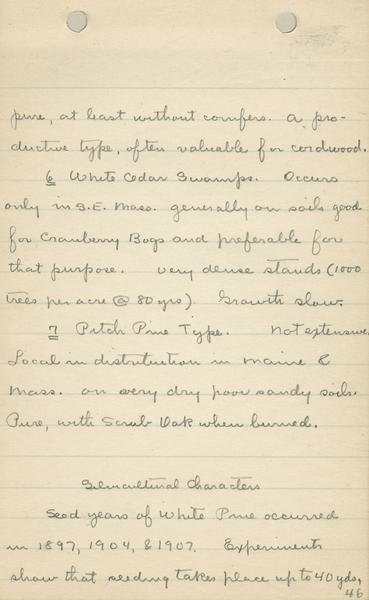 pure, at least without conifers. A pro-
ductive type, often valuable for cordwood.
6 White Cedar Swamps. Occurs
only in S.E. Mass. generally on soils good
for Cranberry Bogs and preferable for
that purpose. Very dense stands (1000
trees per acre @ 80 yrs). Growth slow.
7 Pitch Pine Type. Not extensive.
Local in distribution in Maine &
Mass. on very dry poor sandy soils.
Pure, with Scrub Oak when burned.
Silvicultural Characters
Seed years of White Pine occurred
in 1897, 1904, & 1907. Experiments
show that seeding takes place up to 40 yds,
46